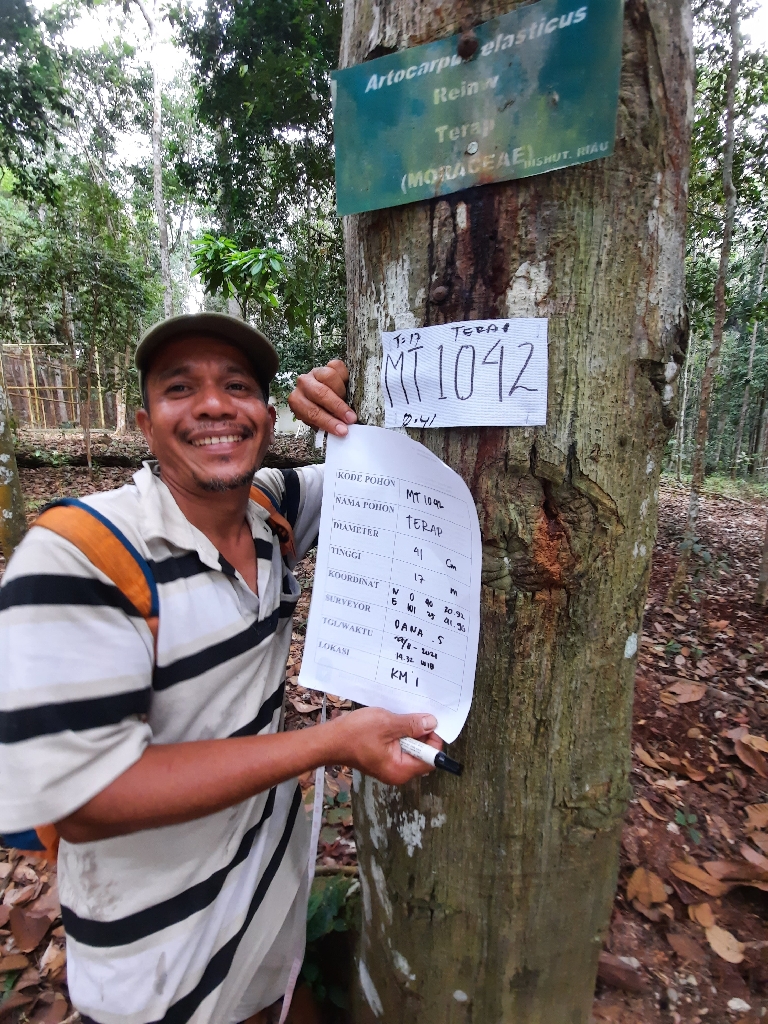 Artocarpus elasticus
Reinw
Terap
(MORACEAE)
DISHUT. RIAU
T=17 TERAP
MT 1042
D=41
KODE POHON MT 1042
NAMA POHON TERAP
DIAMETER 41 Cm
TINGGI 17 m
KOORDINAT N 0 40
E 101 25 41.96
SURVEYOR DANA . S
TGL/WAKTU
14.32 WIB
LOKASI KM 1